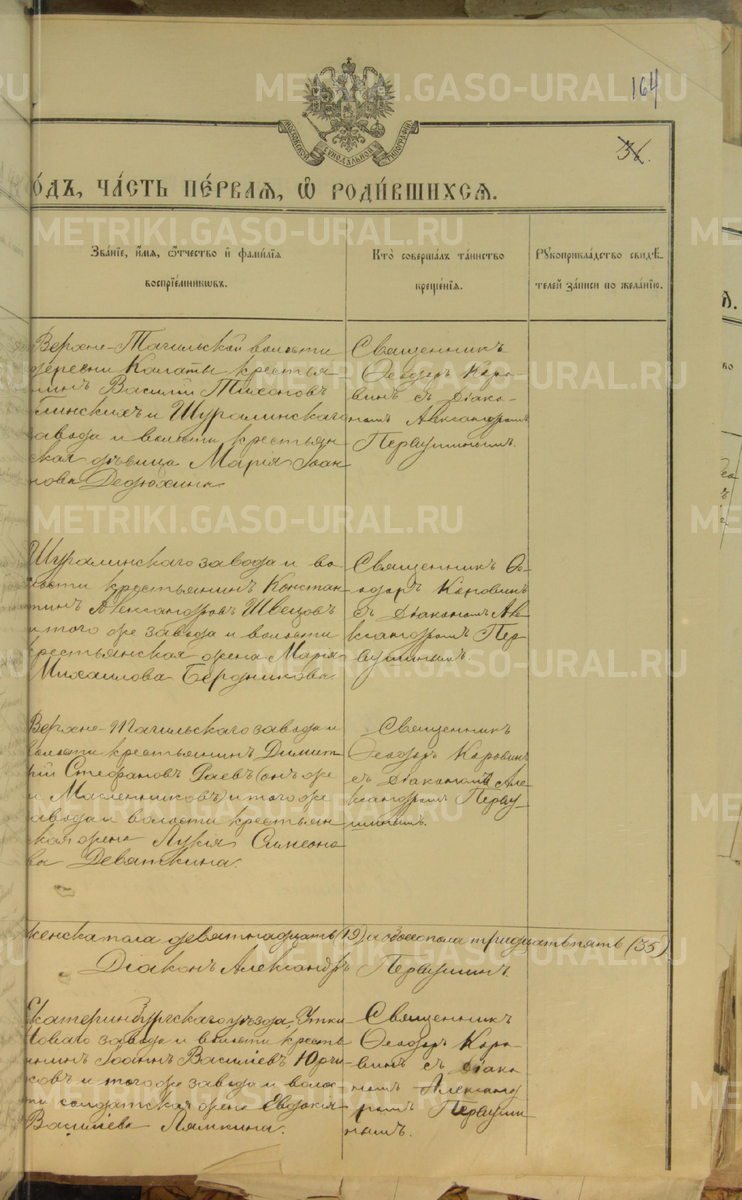 METRIKI.GASO-URAL.RU
164
МОСКОВСКОЙ СѴНОДАЛЬНОЙ ТИПОГРАФІИ
36.
ОДЪ, ЧА́СТЬ ПЕ́РВАѦ, Ѡ҆ РОДИ́ВШИХСѦ.
Зва́нїе, и҆́мѧ, ѻ҆́тчество и҆ фами́лїѧ
воспрїе́мникѡвъ.
Кто̀ соверша́лъ та́инство
креще́нїѧ.
Рꙋкоприкла́дство свидѣ́-
телей за́писи по жела́нїю.
Верхне-Тагильской волости
деревни Калаты крестья
нинъ Василій Тихоновъ
Глинскихъ и Шуралинскаго
завода и волости крестьян
ская дѣвица Марія Іоан
нова Дедюхина
Священникъ
Ѳеодоръ Коро-
винъ съ діако-
номъ Александромъ
Первушинымъ.
Шуралинскаго завода и во-
лости крестьянинъ Констан
тинъ Александровъ Швецовъ
и того же завода и волости
крестьянская жена Марія
Михаилова Бердникова
Священникъ Ѳе-
одоръ Коровинъ
съ діакономъ Але
ксандромъ Пер
вушинымъ.
Верхне-Тагильскаго завода и
волости крестьянинъ Димит
рій Стефановъ Раевъ (онъ же
и Масленниковъ) и того же
завода и волости крестьян
ская жена Лукія Симеоно
ва Девяткина
Священникъ
Ѳеодоръ Коровинъ
съ діакономъ Але
ксандромъ Перву-
шинымъ.
женска пола девятнадцать (19) а обоего пола тридцать пять (35)
Діаконъ Александръ Первушинъ.
Екатеринбургскаго уѣзда, Утки
новаго завода и волости кресть
янинъ Іоаннъ Василіевъ
и того же завода и воло
сти солдатская жена Евдокія
Василіева Лямкина.
Священникъ
Ѳеодоръ Коро-
винъ съ діако
номъ Александ
ромъ Первуши
нымъ.